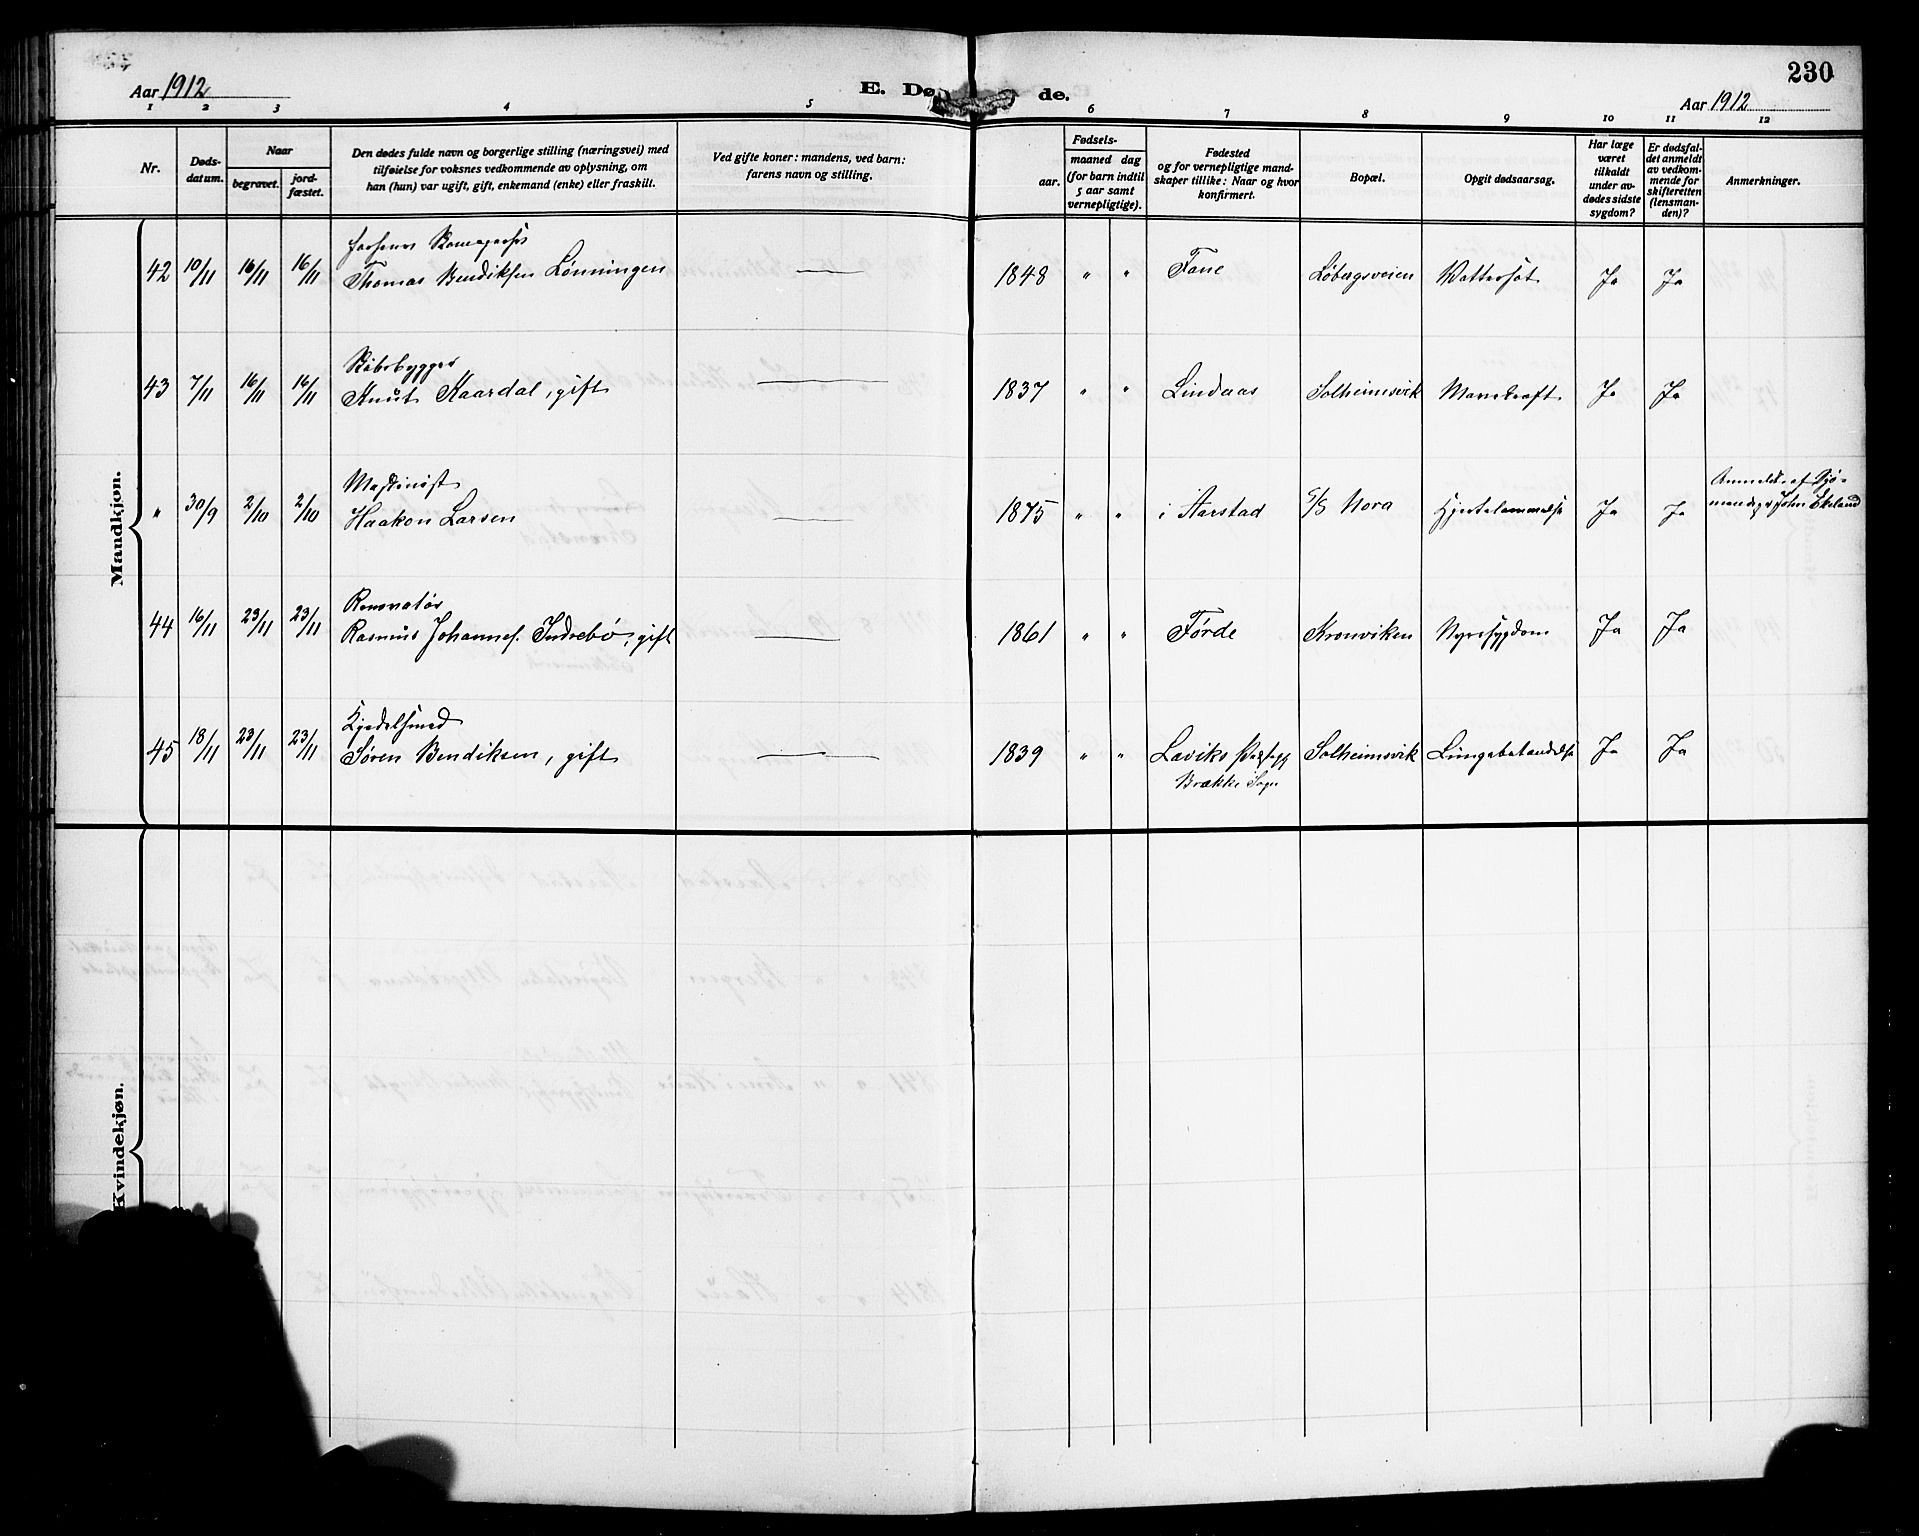 230
Aar 1912
E. Dø de.
Aar 1912
1 2 3 4 5 6 7 8 9 10 11 12
Nr.
Døds-
datum.
Naar
begravet.
jord-
fæstet.
Den dødes fulde navn og borgerlige stilling (næringsvei) med
tilføielse for voksnes vedkommende av oplysning, om
han (hun) var ugift, gift, enkemand (enke) eller fraskill.
Ved gifte koner: mandens, ved barn:
farens navn og stilling.
Fødsels-
aar.
maaned dag
(for barn indtil
5 aar samt
vernepligtige).
Fødested
og for vernepligtige mand-
skaper tillike: Naar og hvor
konfirmert.
Bopæl.
Opgit dødsaarsag.
Har læge
været
tilkaldt
under av-
dødes sidste
sygdom?
Er dødsfal-
det anmeldt
av vedkom-
mende for
skifteretten
(lensman-
den)?
Anmerkninger.
Mandkjøn.
42 10/11 16/11 16/11 Thomas Bendiksen Lønningen — 1848 " " Fane Løbergsveien Vattersot Ja Ja
Støbebygger
43 7/11 16/11 16/11 Knut Kaardal, gift — 1837 " " Lindaas Solheimsvik Ja Ja
Maskinist
" 30/9 2/10 2/10 Haakon Larsen — 1875 " " i Aarstad S/S Nora Hjertelammelse Ja Ja
Anmeldt af Sjø-
mandspr John Ekeland
Renovatør
44 16/11 23/11 23/11 Rasmus Johannes. Indrebø, gift — 1861 " " Førde Kronviken Nyresygdom Ja Ja
Kjedelsmed
45 18/11 23/11 23/11 Søren Bendiksen, gift — 1839 " " Laviks Solheimsvik Lungebetændelse Ja Ja
Brække Sogn
Kvindekjøn.